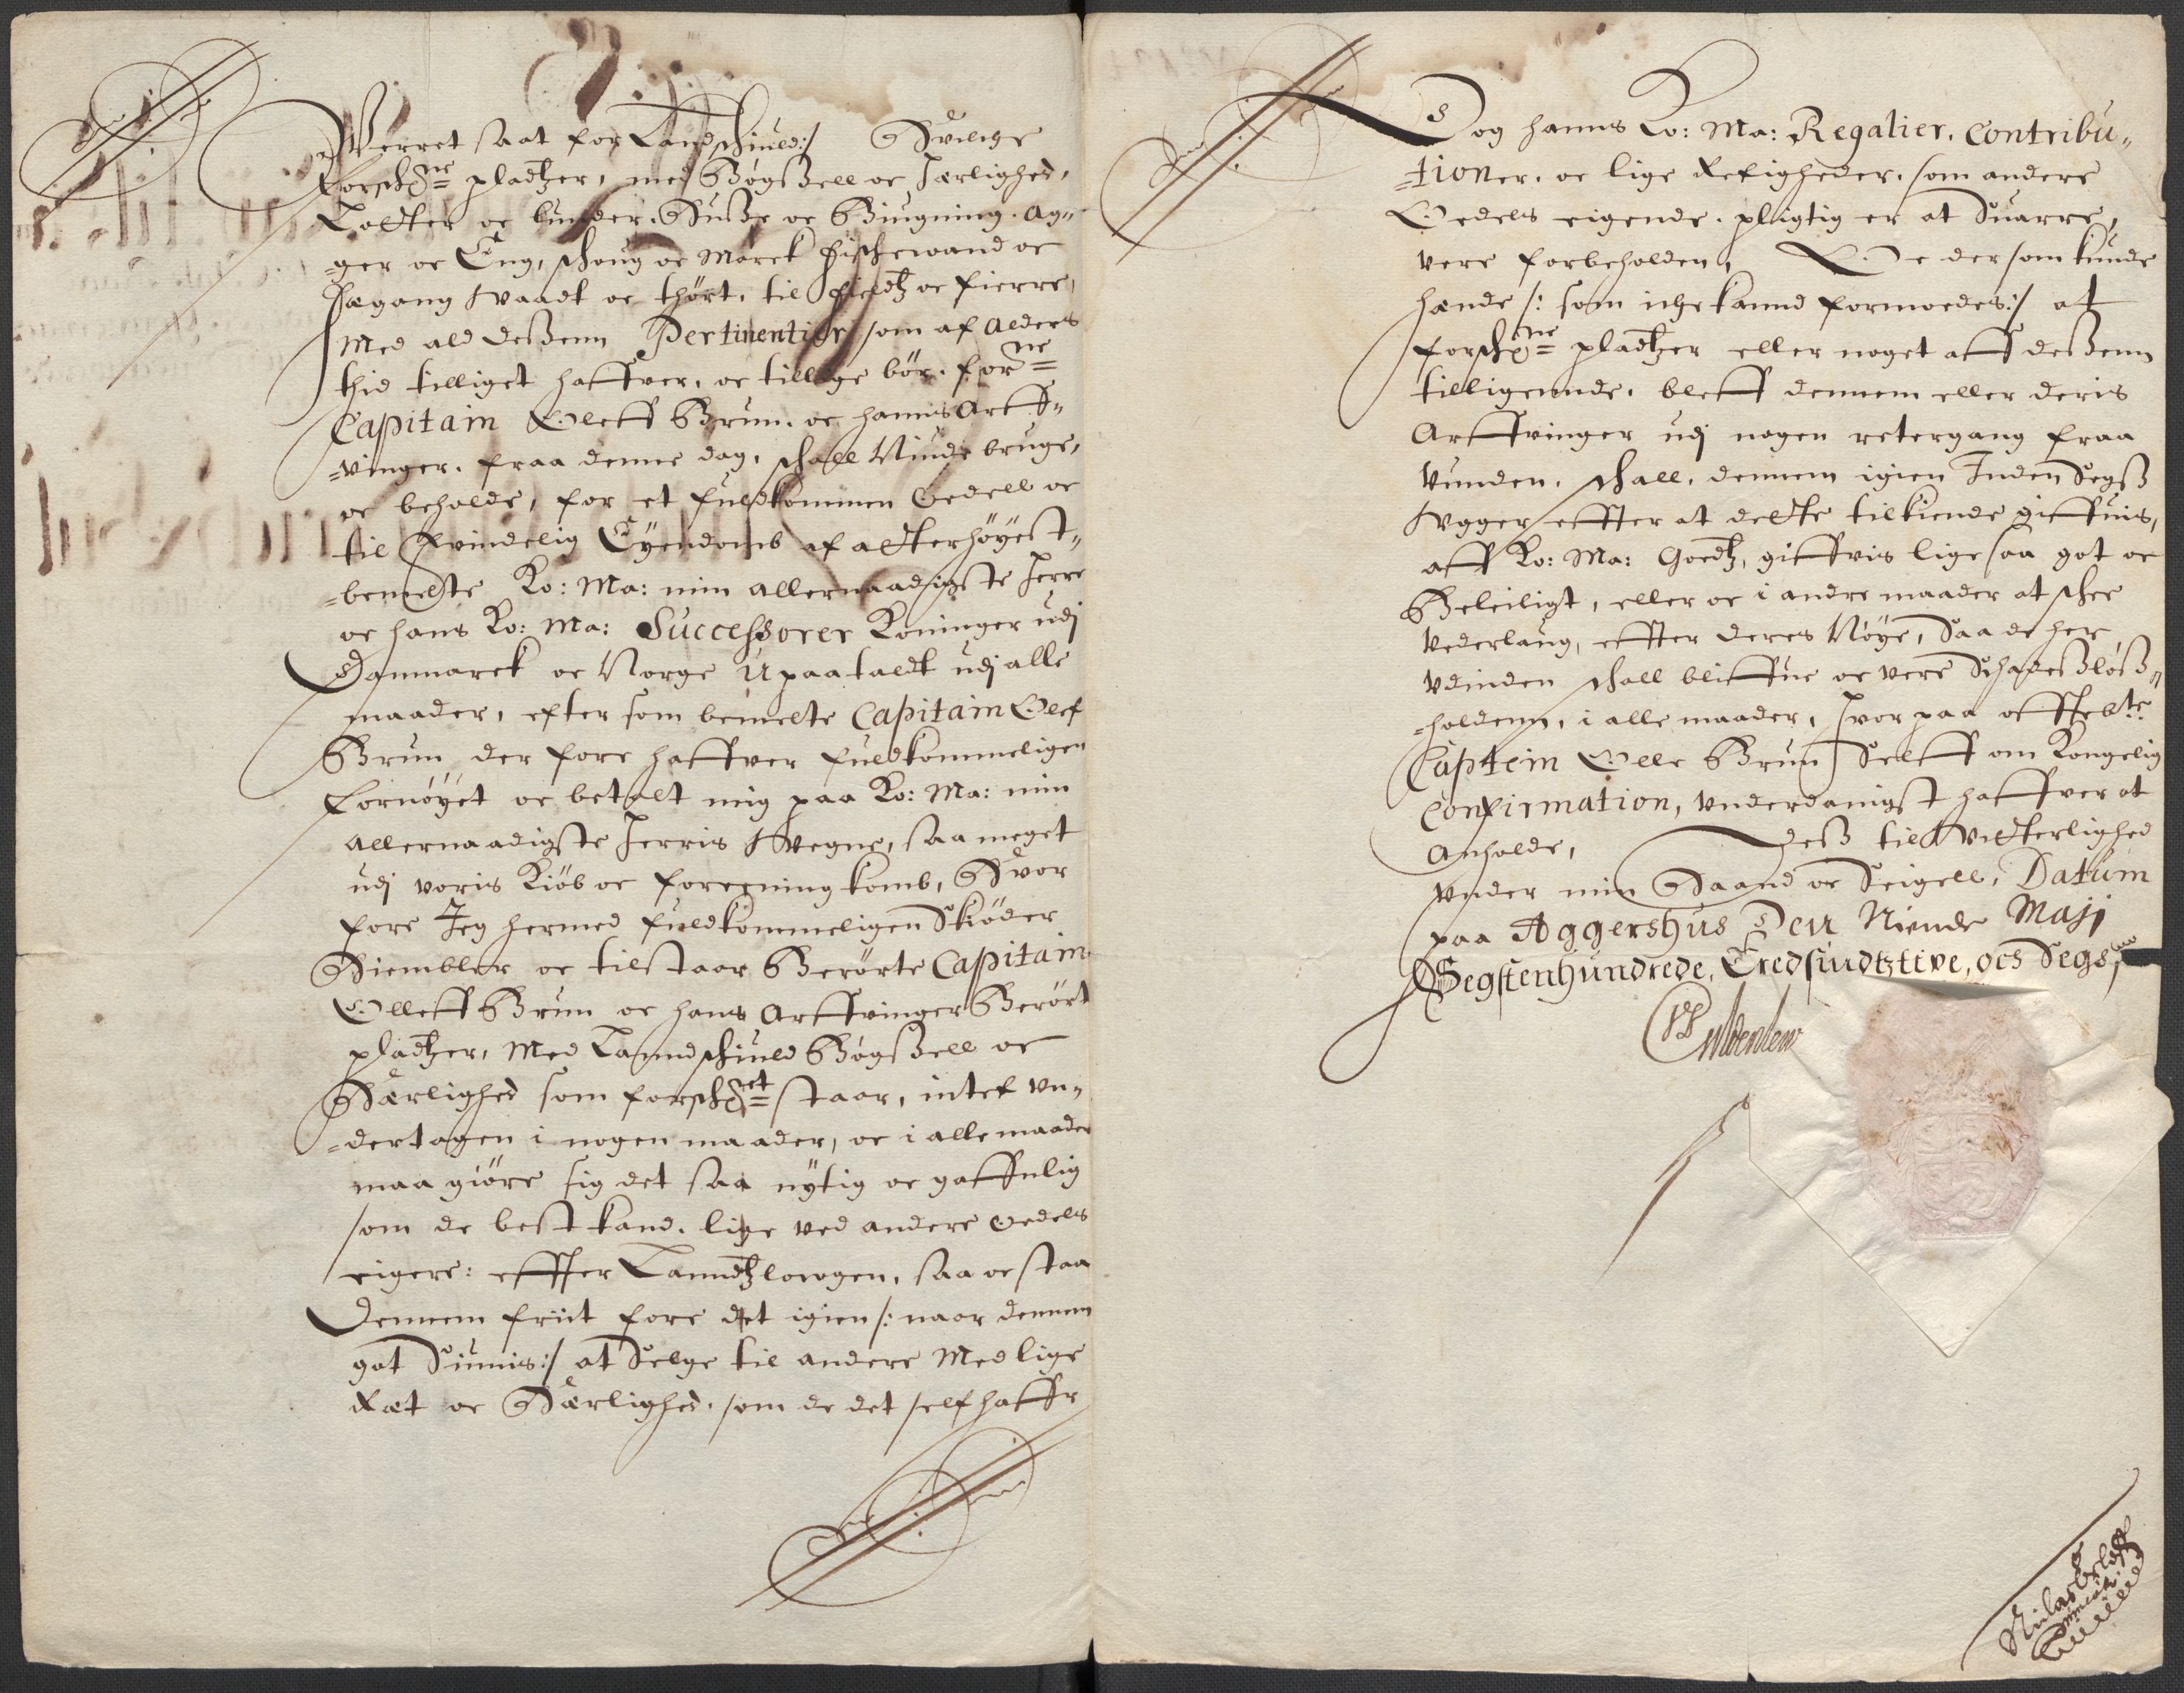 Werret saat for Landschiuld:/ Huilche
forschrne pladtzer, med Bøgszell oc Herlighed,
Tofter oc lunder. Husze oc Biugning. Ag„
=ger oc Eng, schoug oc Marck fischewand oc
Fægang Waadt oc thørt, til Fieldtz oc fierre,
Med ald deszenn Pertinentier som af Alders
thid tilliget haffver, oc tilligge bør. forne
Capitain Oleff Brun. oc hannis Arff„
=vinger. fraa denne dag, schall Niude bruge,
oc beholde, for et fuldkommen Oedell oc
til Evindelig Eyendomb af allerhøyest„
=bemelte Ko: Ma: min allernaadigste Herre
oc hans Ko: Ma: Successorer Koninger udj
Danmarck oc Norge Upaataldt udj alle
maader, efter som bemelte Capitain Olef
Brun der fore haffver fuldkommeligen
fornøyet oc betalt mig paa Ko: Ma: min
Allernaadigste Herris Wegne, saa meget
udj voris Kiøb oc foreening komb, Hvor
fore Jeg hermed fuldkommeligen Skiøder
Hiembler oc tilstaar Berørte Capitain
Olleff Brun oc hans Arffvinger Berørt
pladtzer, Med Lanndschiuld Bøgszell oc
Herlighed som forschret staar, intet Un„
=dertagen i nogen maader, oc i alle maader
maa giøre sig det saa nytig oc gaffnlig
som de best kand. lige ved andere Oedels
eigere: effter Lanndtzlowgen, saa oc staa
Dennem friit fore det igien /: naar dennem
got Siunis :/ at Selge til andere Med lige
Ræt oc Herlighed. som de det self haffr
Dog hanns Ko: Ma: Regalier. Contribu„
=tioner. oc lige Retigheder. som andere
Oedels eigende. pligtig er at Suarre,
vere forbeholden, Oc dersom kunde
hænde /: som iche kannd formoedes :/ at
forschrne pladtzer eller noget aff deszenn
tilligennde. bleff dennem eller deris
Arffvinger udj nogen retergang fraa
vunden. schall. dennem igien Inden Segs
Wgger effter at dette tilkiende giffuis,
aff Ko: Ma: Goedtz, giffvis lige saa got oc
Beleiligt, eller oc i andre maader at schee
Vederlaug, effter deres Nøye, Saa de her
Udinden schall bliffue oc vere Schadeszløsz„
=holdenn, i alle maader, Hvor paa offtelte
Captein Olle Brun Selff om Kongelig
Confirmation, Underdanigst haffver at
Anholde, Desz til Witterlighed
Under min Haand oc Seigell, Datum
paa Aggershus Den Niende Maji
Segstenhundrede, Tredsindtztive, ocs Segs,
Gyldenlew